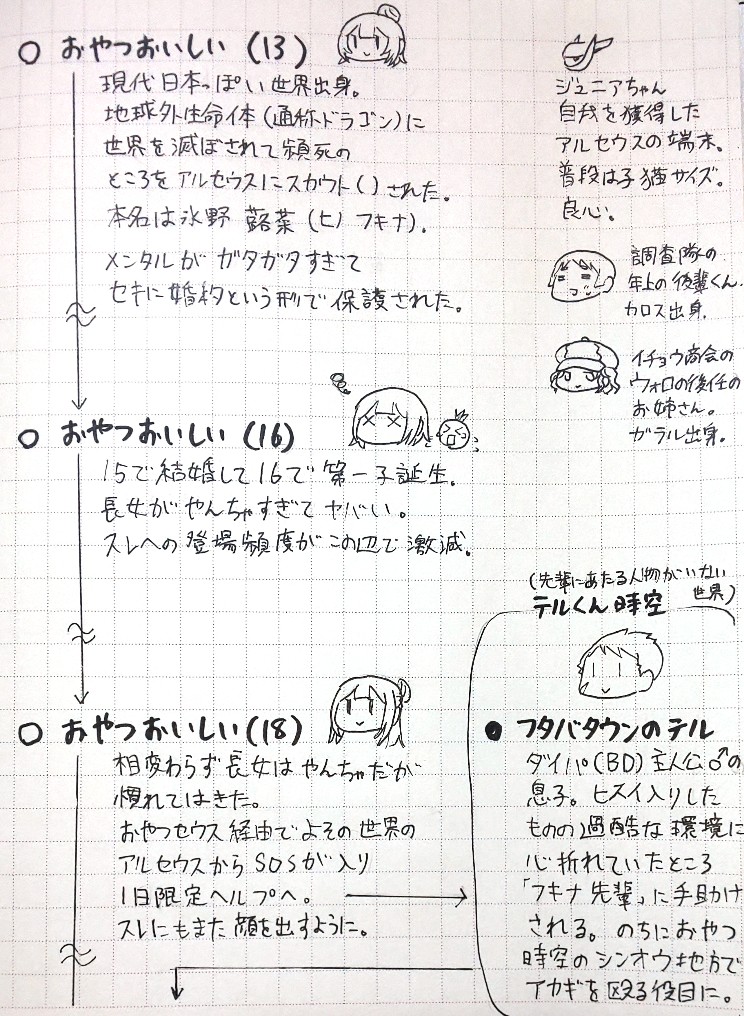 おやつおいしい (13)
現代日本っぽい世界出身。
地球外生命体 (通称ドラゴン)に
世界を滅ぼされて瀕死の
ところをアルセウスにスカウト()された。
本名は氷野 蕗菜 (ヒノ フキナ)。
メンタルが ガタガタすぎて
セキに婚約という形で保護された。
ジュニアちゃん
自我を獲得した
アルセウスの端末。
普段は子猫サイズ。
良心。
調査隊の
年上の後輩くん。
カロス出身。
イチョウ商会の
ウォロの後任の
お姉さん。
ガラル出身。
おやつおいしい (16)
15で結婚して16で第一子誕生。
長女がやんちゃすぎてヤバい。
スレへの登場頻度がこの辺で激減。
おやつおいしい (18)
相変わらず長女はやんちゃだが
慣れてはきた。
おやつセウス経由でよその世界の
アルセウスからSOSが入り
1日限定ヘルプへ。
スレにもまた顔を出すように。
(先輩にあたる人物がいない
世界)
テルくん時空
フタバタウンのテル
ダイパ(BD)主人公♂の
息子。ヒスイ入りした
ものの過酷な環境に
心折れていたところ
「フキナ先輩」に手助け
される。のちにおやつ
時空のシンオウ地方で
アカギを殴る役目に。